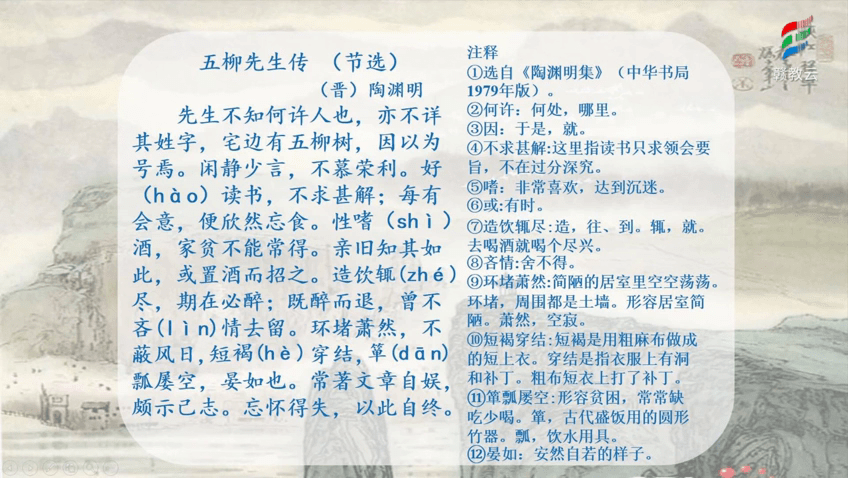 五柳先生传 （节选）
（晋）陶渊明
先生不知何许人也，亦不详
其姓字，宅边有五柳树，因以为
号焉。闲静少言，不慕荣利。好
（hào）读书，不求甚解；每有
会意，便欣然忘食。性嗜（shì）
酒，家贫不能常得。亲旧知其如
此，或置酒而招之。造饮辄(zhé)
尽，期在必醉；既醉而退，曾不
吝(lìn)情去留。环堵萧然，不
蔽风日,短褐(hè)穿结,箪(dān)
瓢屡空，晏如也。常著文章自娱，
颇示己志。忘怀得失，以此自终。
注释
①选自《陶渊明集》（中华书局
1979年版）。
②何许：何处，哪里。
③因：于是，就。
④不求甚解:这里指读书只求领会要
旨，不在过分深究。
⑤嗜：非常喜欢，达到沉迷。
⑥或:有时。
⑦造饮辄尽:造，往、到。辄，就。
去喝酒就喝个尽兴。
⑧吝情:舍不得。
⑨环堵萧然:简陋的居室里空空荡荡。
环堵，周围都是土墙。形容居室简
陋。萧然，空寂。
⑩短褐穿结:短褐是用粗麻布做成
的短上衣。穿结是指衣服上有洞
和补丁。粗布短衣上打了补丁。
⑪箪瓢屡空:形容贫困，常常缺
吃少喝。箪，古代盛饭用的圆形
竹器。瓢，饮水用具。
⑫晏如：安然自若的样子。
赣教云